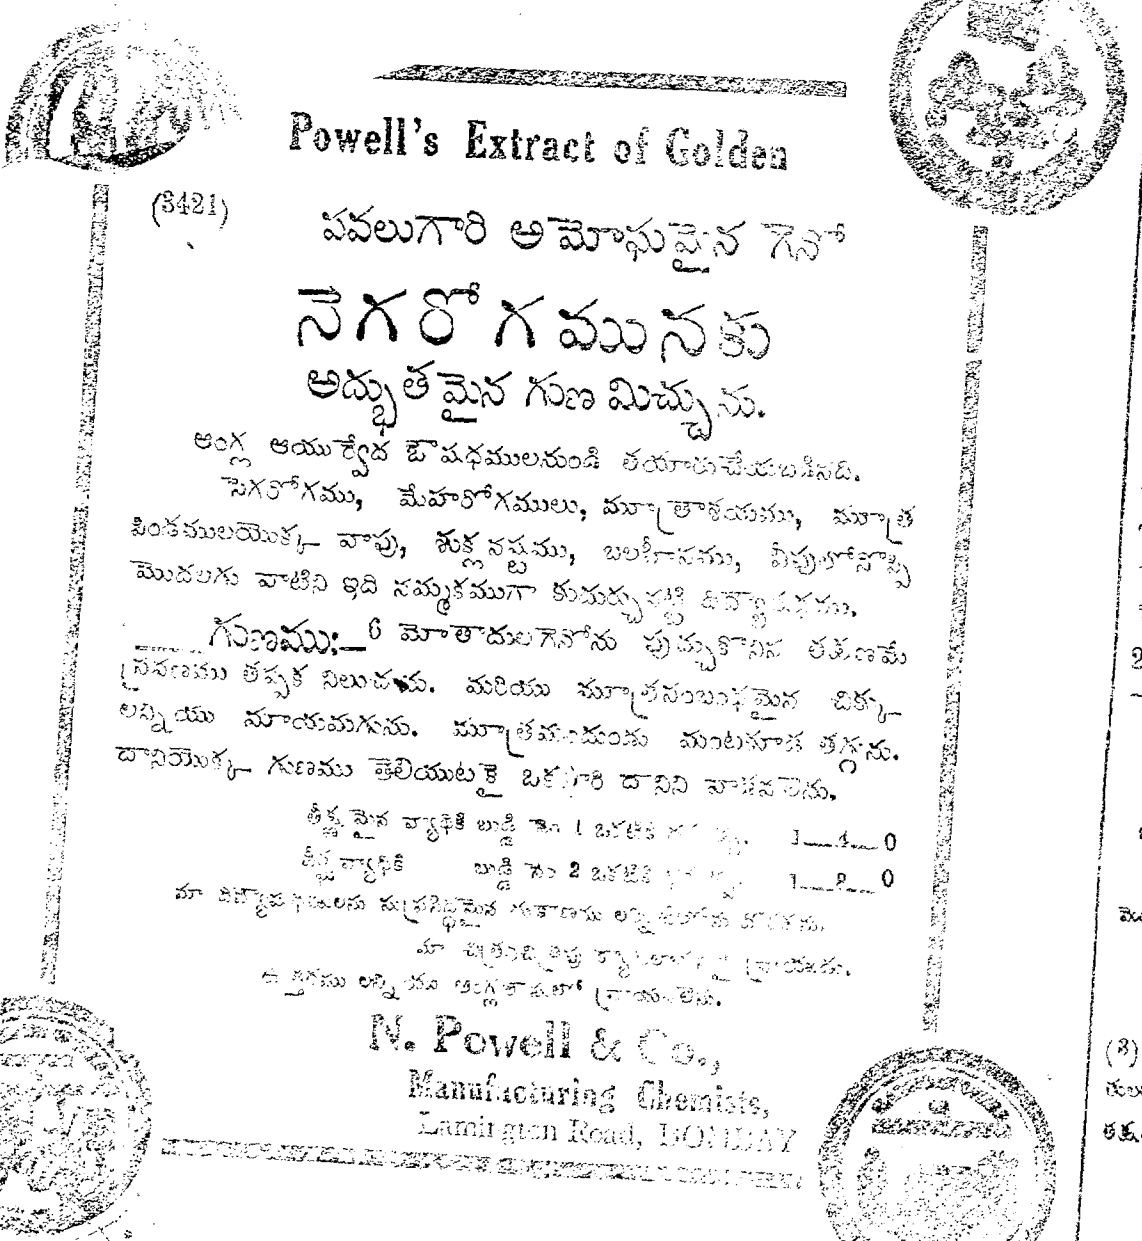 Powell's Extract of Golden
(3421)
పవలుగారి అమోఘమైన గెనో
నెగరోగమునకు
అద్భుతమైన గుణ మిచ్చును.
ఆంగ్ల ఆయుర్వేద ఔషధములనుండి తయారుచేయబడినది.
సెగరోగము, మేహరోగములు, మూత్రాశయము, మూత్ర
పిండములయొక్క వాపు, శుక్లనష్టము, బలహీనము, వీపులోనొప్పి
మొదలగు వాటిని ఇది నమ్మకముగా కుదుర్చునట్టి దివ్యౌషధము.
గుణము:—6 మోతాదుల గెనోను పుచ్చుకొనిన తక్షణమే
స్రవణము తప్పక నిలుచును. మరియు మూత్రసంబంధమైన చిక్కు
లన్నియు మాయమగును. మూత్రమందుండు మంటకూడ తగ్గును.
దానియొక్క గుణము తెలియుటకై ఒకసారి దానిని వాడవలెను.
తీక్ష్ణమైన వ్యాధికి బుడ్డి నెం 1 ఒకటికి 1—4—0
వ్యాధికి బుడ్డి నెం 2 ఒకటికి 1—8—0
మా సుప్రసిద్ధమైన దొరకును.
మా వ్రాయుడు.
ఉత్తరము లన్నియు ఆంగ్లభాషలో వ్రాయవలెను.
N. Powell & Co.,
Manufacturing Chemists,
Lamington Road, BOMBAY
(3)